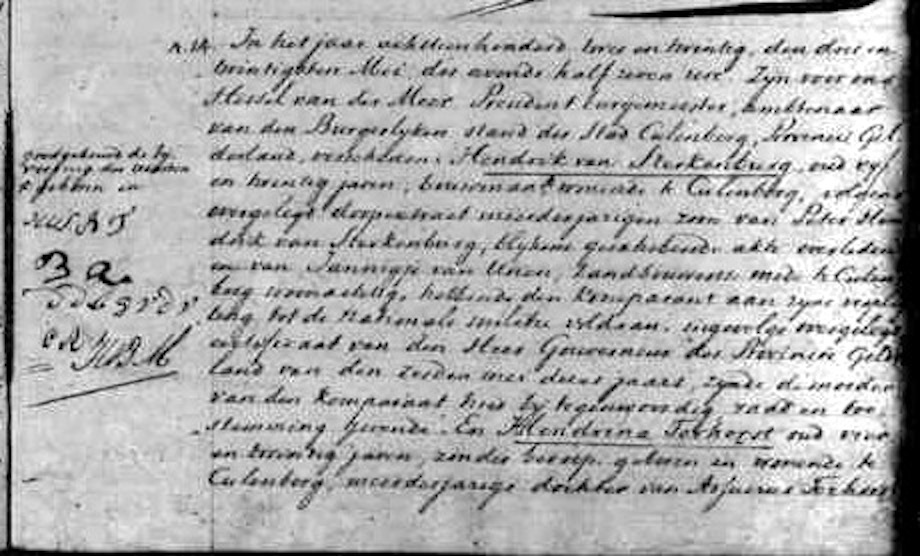 In het jaar achttienhonderd twee en twintig, den drie en
twintigsten Mei des avonds half zeven ure Zyn voor ons
Hessel van der Meer President burgemeester, ambtenaar
van den Burgerlyken stand der Stad Culenborg, Provincie Gel
derland, verschenen. Hendrik van Sterkenburg, oud vyf
en twintig jaren, bouwman wonende te Culenborg, volgens
overgelegd doopextract meerderjarigen zoon van Peter Hen
drik van Sterkenburg, blykens geachte akte overleden
en van Jannigje van Unen, Landbouwersse mede te Culen
borg woonachtig hebbende den komparant aan zyne verplig
ting tot de nationale militie voldaan, ingevolge overgelegd
certificaat van den Heer Gouverneur der Provincie Gelder
land van den mei dezes jaars, zynde de moeder
van den komparant hier by tegenwoordig, raad en toe
stemming gevende. En Hendrina Terhorst oud vier
en twintig jaren, zonder beroep geboren en wonende te
Culenborg, meerderjarige dochter van Terhorst
goedgekeurd de by
voeging der woorden
geboren en
B a
HVBM